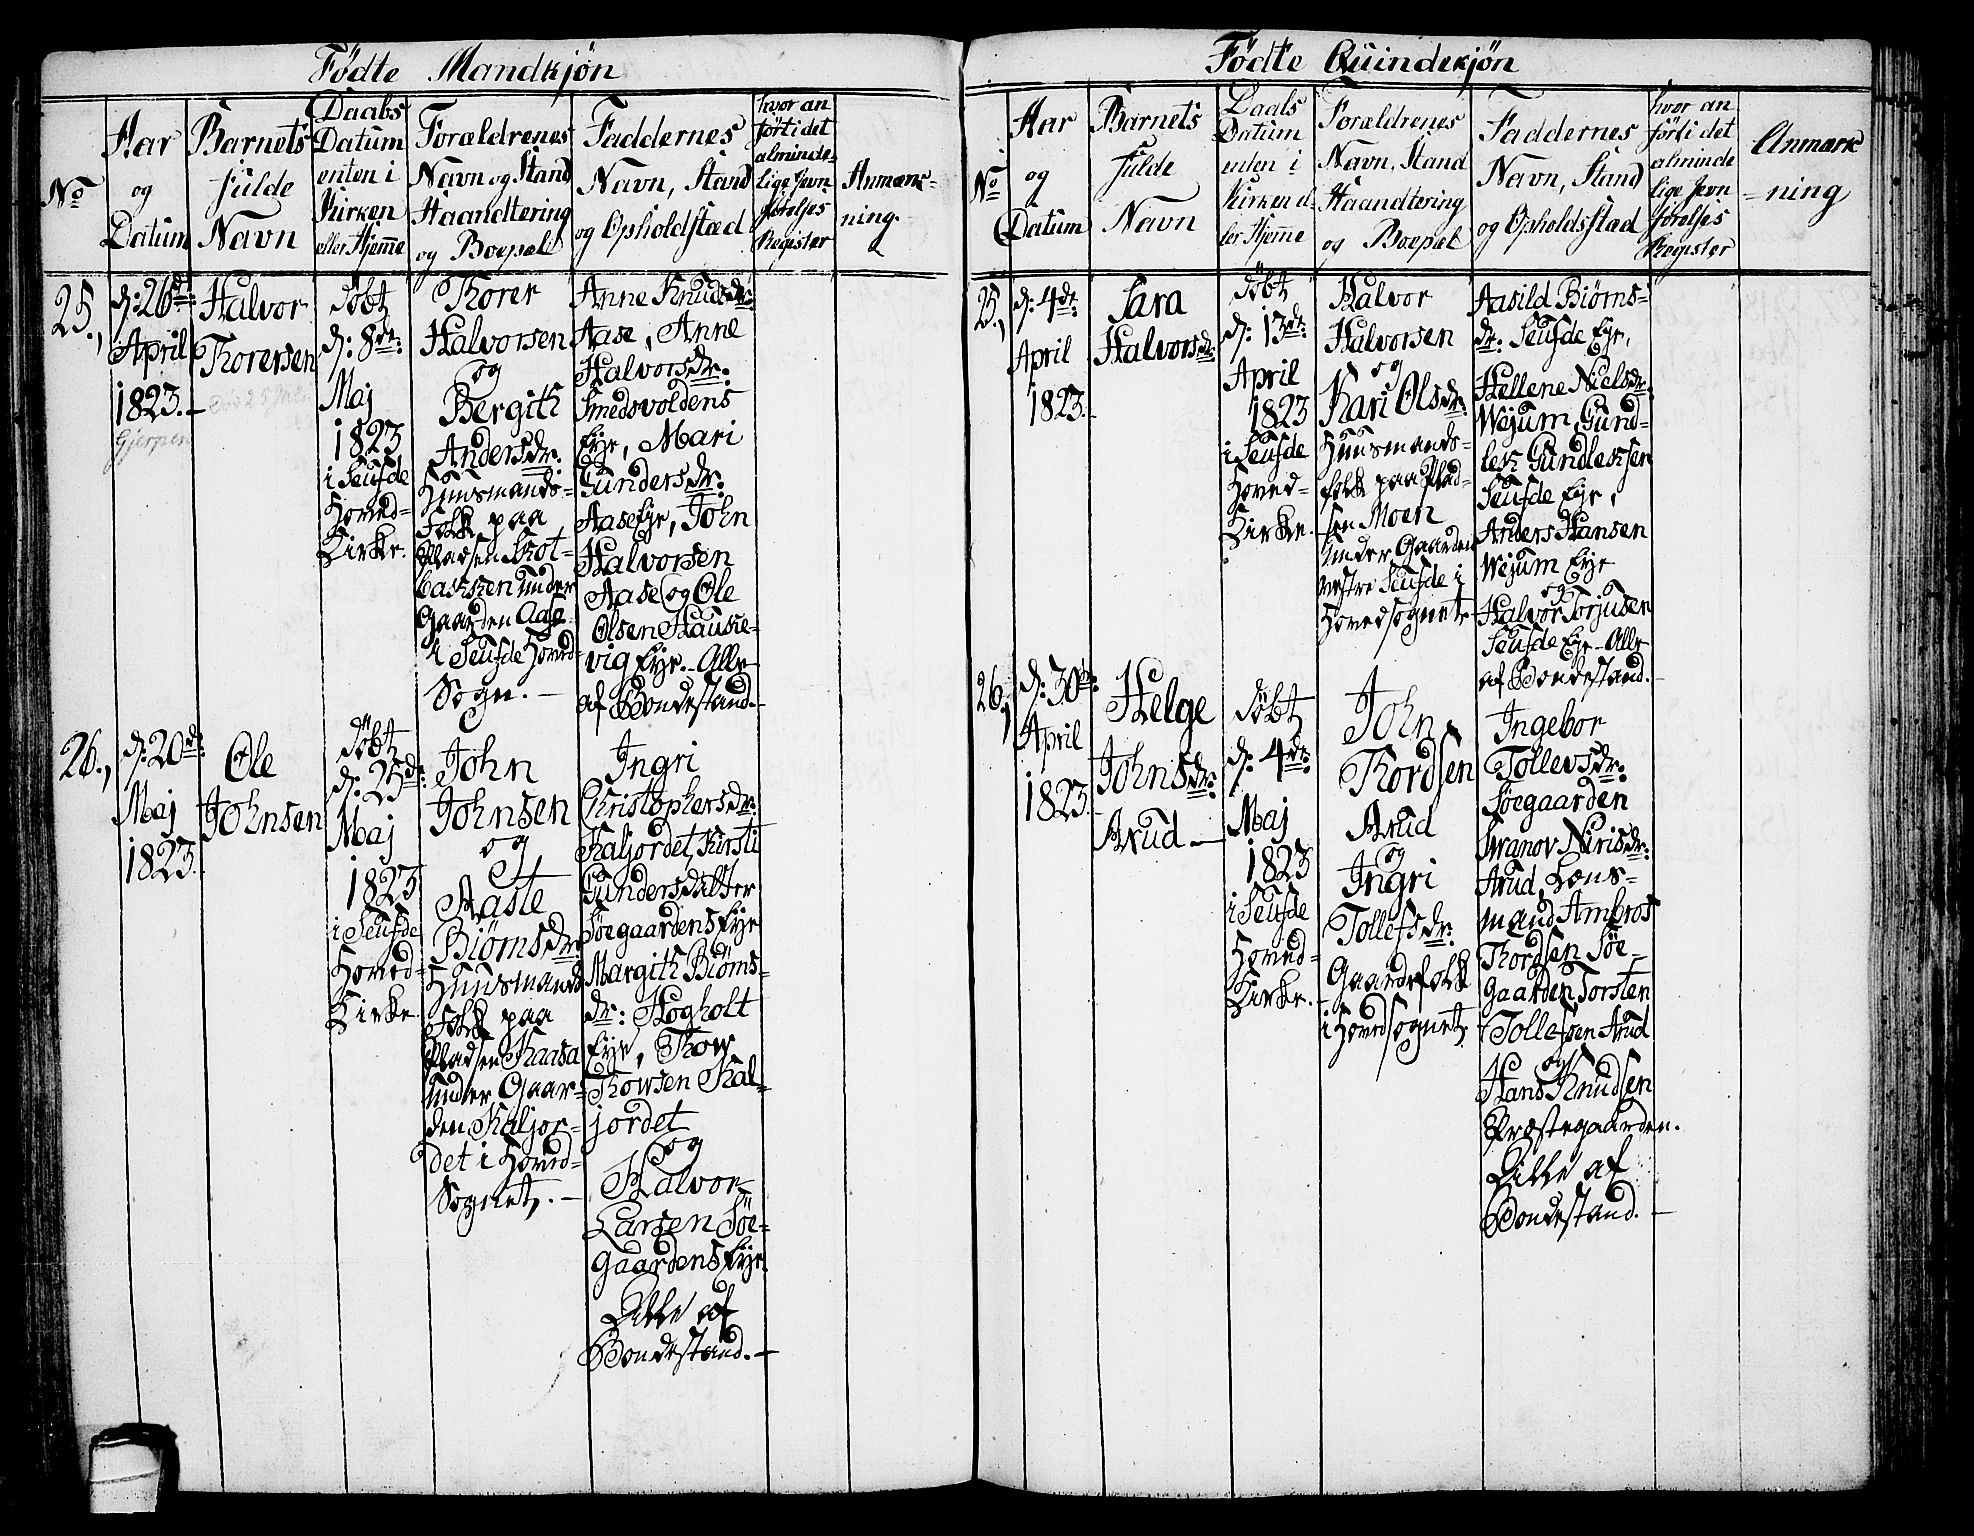 Födte Mandkjön
No
Aar
og
Datum
Barnets
fulde
Navn
Daabs
Datum
enten i
Kirken
eller Hjeme
Forældrenes
Navn og Stand
Haandtering
og Boepæl
Faddernes
Navn, Stand
og Opholdstæd
hvor an
förti det
alminde-
lige Jevn
förelses
Register
Anmærk-
ning.
25.,
d: 26de:
April
1823.-
Gjerpen
Halvor
Thorersen
Döbt
d: 8de:
Maj
1823
i Seufde
Hoved-
Kirke.
Thorer
Halvorsen
og
Bergith
Andersdr:
Huusmands-
Folk paa
Pladsen Skot-
bakken under
Gaarden Aase
i Seufde Hoved-
Sogn. -
Anne Knudsdr:
Aase, Anne
Halvorsdr:
Smedsvoldens
Eye, Mari
Gundersdr:
Aase Eye, John
Halvorsen
Aase og Ole
Olsen Hauke-
vig Eye. - Alle
af Bondestand. -
26.,
d: 20de:
Maj
1823.
Ole
Johnsen
Döbt
d: 25de:
Maj
1823
i Seufde
Hoved-
Kirke.
John
Johnsen
og
Aaste
Biörnsdr:
Huusmands
Folk paa
Pladsen Kaasa
under Gaar-
den Kaljor-
det i Hoved-
Sognet. -
Ingri
Christophersdr:
Kaljordet, Kirsti
Gundersdatter
Söegaardens Eye
Margith Biörns-
dr: Hogholt
Eye, Thow
Thowsen Kal-
jordet
og
Halvor
Larsen Söe-
gaardens Eye.
Alle af
Bondestand. -
Födte Quindekjön
No
Aar
og
Datum
Barnets
fulde
Navn
Daabs
Datum
enten i
Kirken el-
ler Hjeme
Forældrenes
Navn, Stand
Haandtering
og Boepæl
Faddernes
Navn, Stand
og Opholdsstæd
hvor an
förti det
alminde
lige Jevn
förelses
Register
Anmærk
-ning
25.,
d: 4de
April
1823.
Sara
Halvorsdr:
Döbt
d: 13de:
April
1823
i Seufde
Hoved-
Kirke.
Halvor
Halvorsen
og
Kari Olsdr:
Huusmands-
folk paa Plad-
sen Moen
under Gaarden
vestre Seufde i
Hovedsognet.
Aasild Biörns-
dr: Seufde Eye,
Hellene Nielsdr:
Wejum, Gund-
lek Gundleksen
Seufde Eye,
Anders Hansen
Wejum Eye
og
Halvor Torjusen
Seufde Eye - Alle
af Bondestand. -
26.,
d: 30te:
April
1823.
Helge
Johnsdr:
Arud -
Döbt
d: 4de:
Maj
1823
i Seufde
Hoved-
Kirke. -
John
Thordsen
Arud
og
Ingri
Tollefsdr:
Gaardefolk
i Hovedsognet.
Ingebor
Tollevsdr:
Söegaarden
Svanov Nirisdr:
Arud, Lens-
mand Ambros
Thordsen Söe-
gaarden, Torsten
Tollefsen Arud
og
Hans Knudsen
Præstegaarden.
Alle af
Bondestand. -